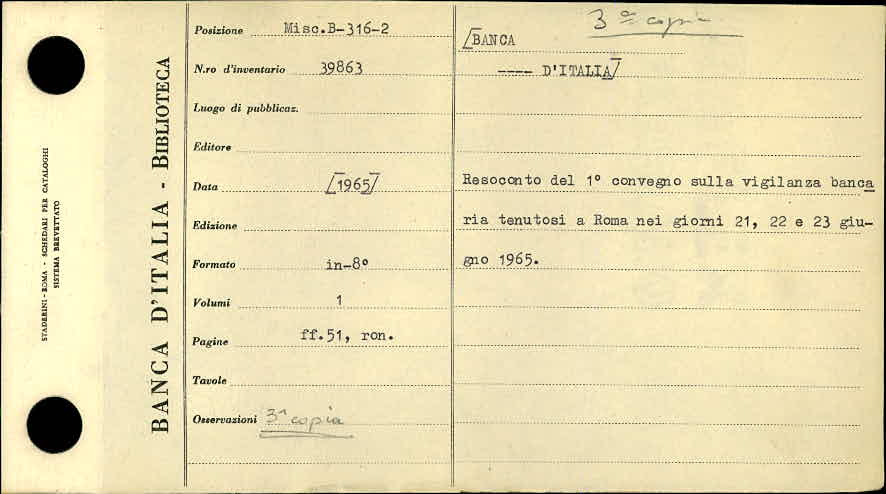 STADERINI - ROMA - SCHEDARI PER CATALOGHI
SISTEMA BREVETTATO
BANCA D'ITALIA - BIBLIOTECA
Posizione Misc.B-316-2
N.ro d'inventario 39863
Luogo di pubblicaz.
Editore
Data [1965]
Edizione
Formato in-8º
Volumi 1
Pagine ff.51, ron.
Tavole
Osservazioni 3ª copia
3ª copia
[BANCA
---- D'ITALIA]
Resoconto del 1º convegno sulla vigilanza banca
ria tenutosi a Roma nei giorni 21, 22 e 23 giu-
gno 1965.